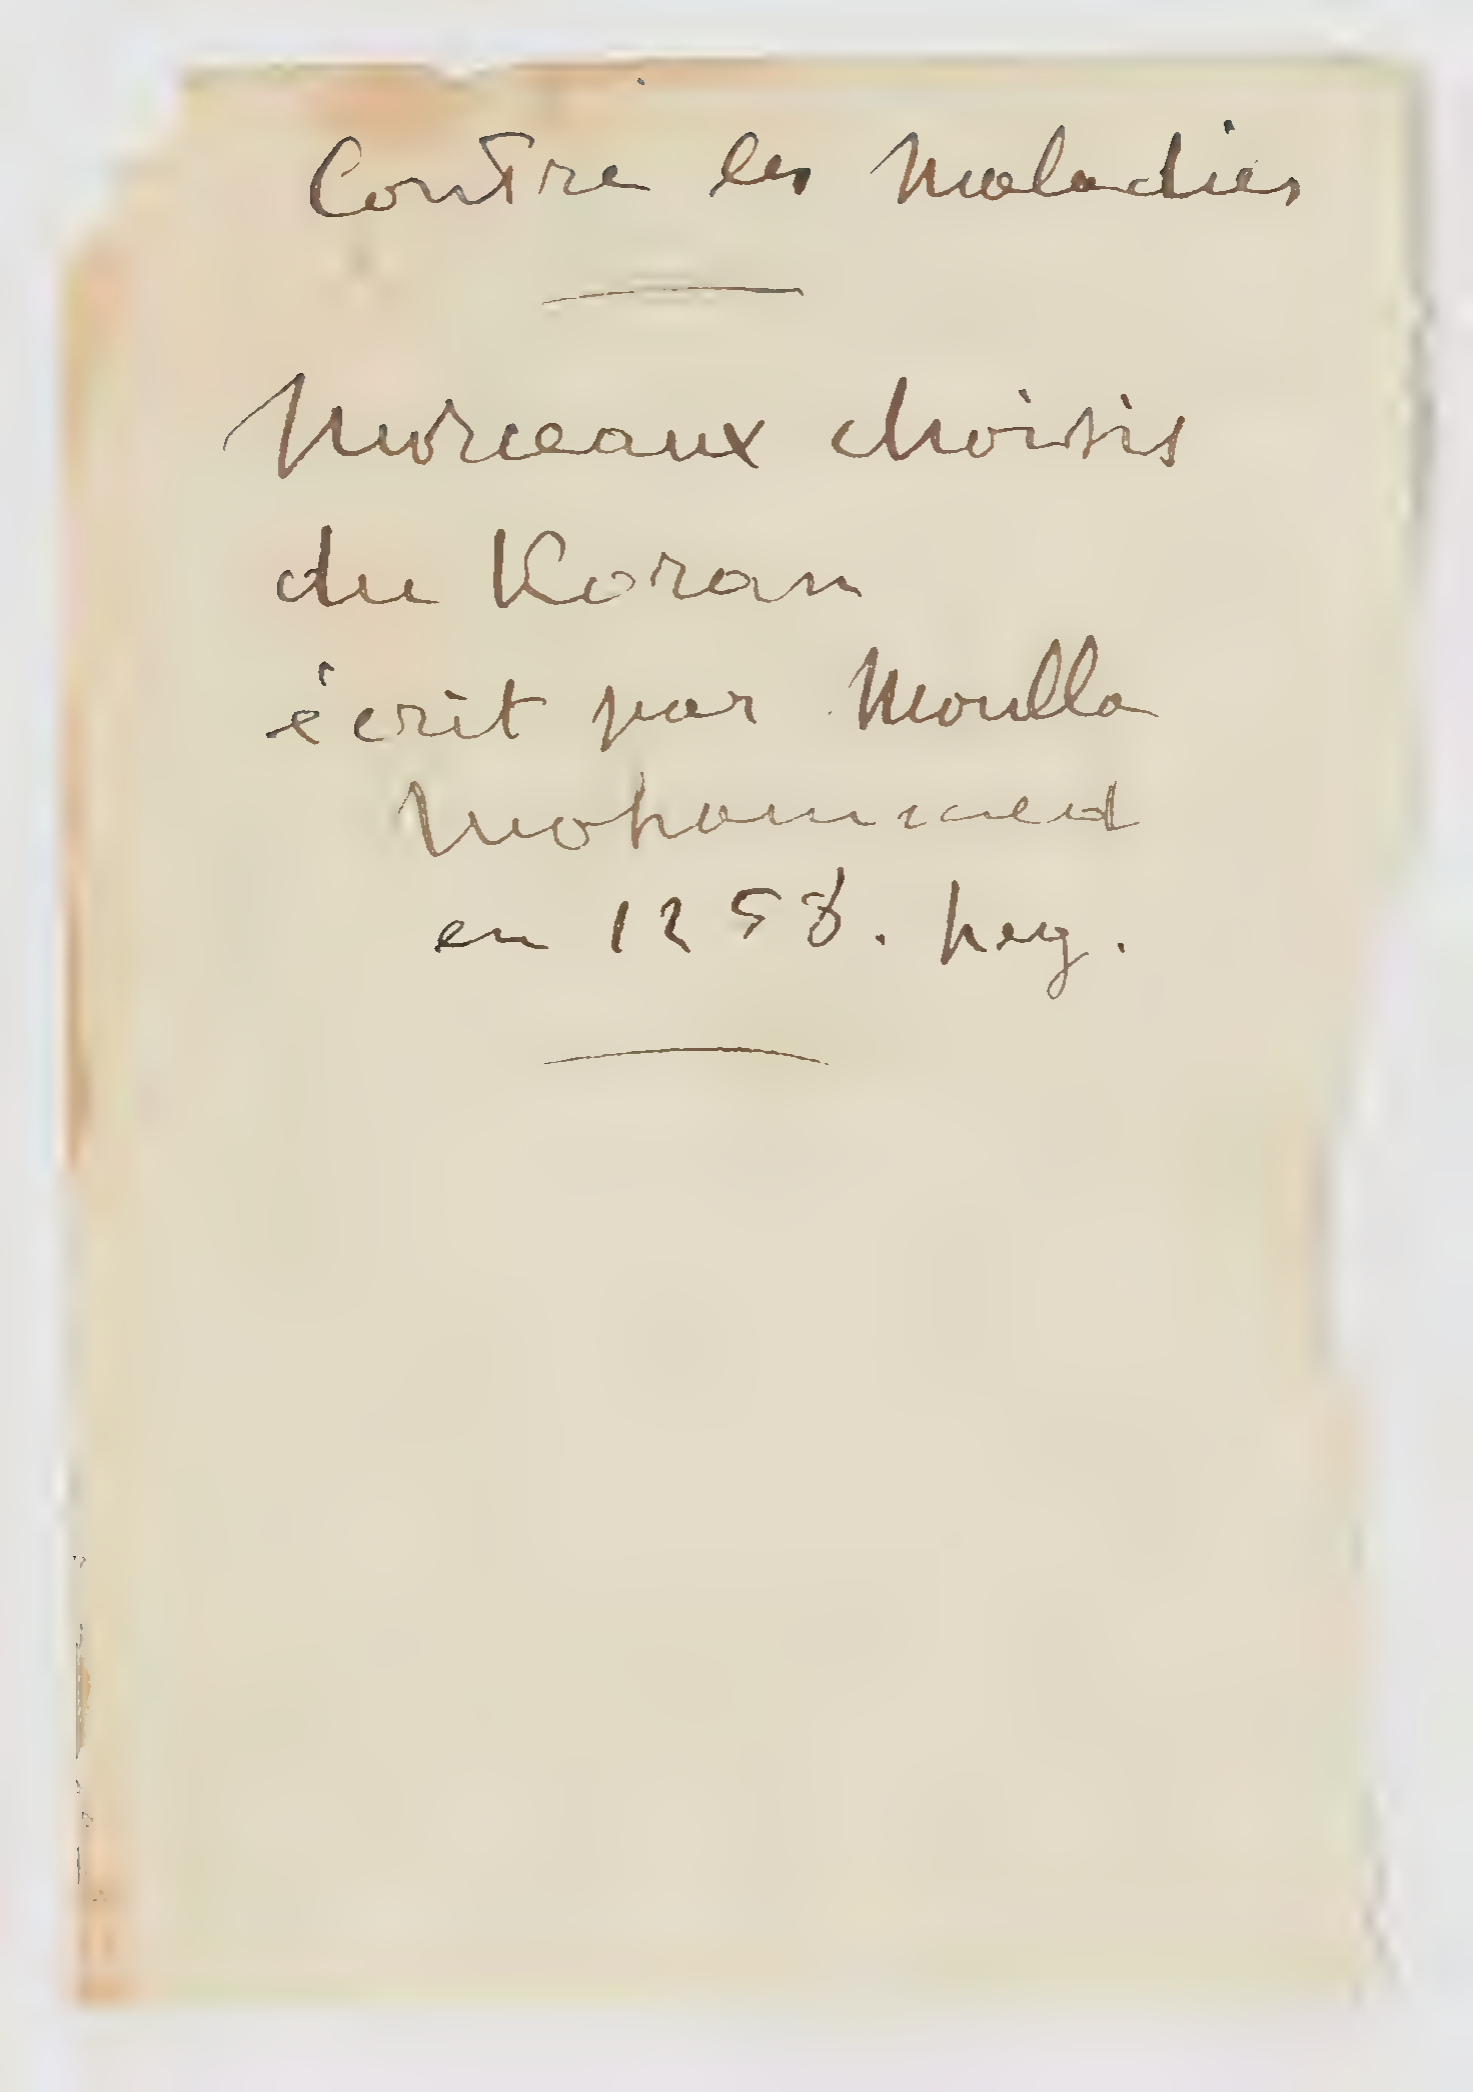 Contre les Maladies
Morceaux choisis
du Koran
écrit par Moulla
Mohammed
en 1258. heg.